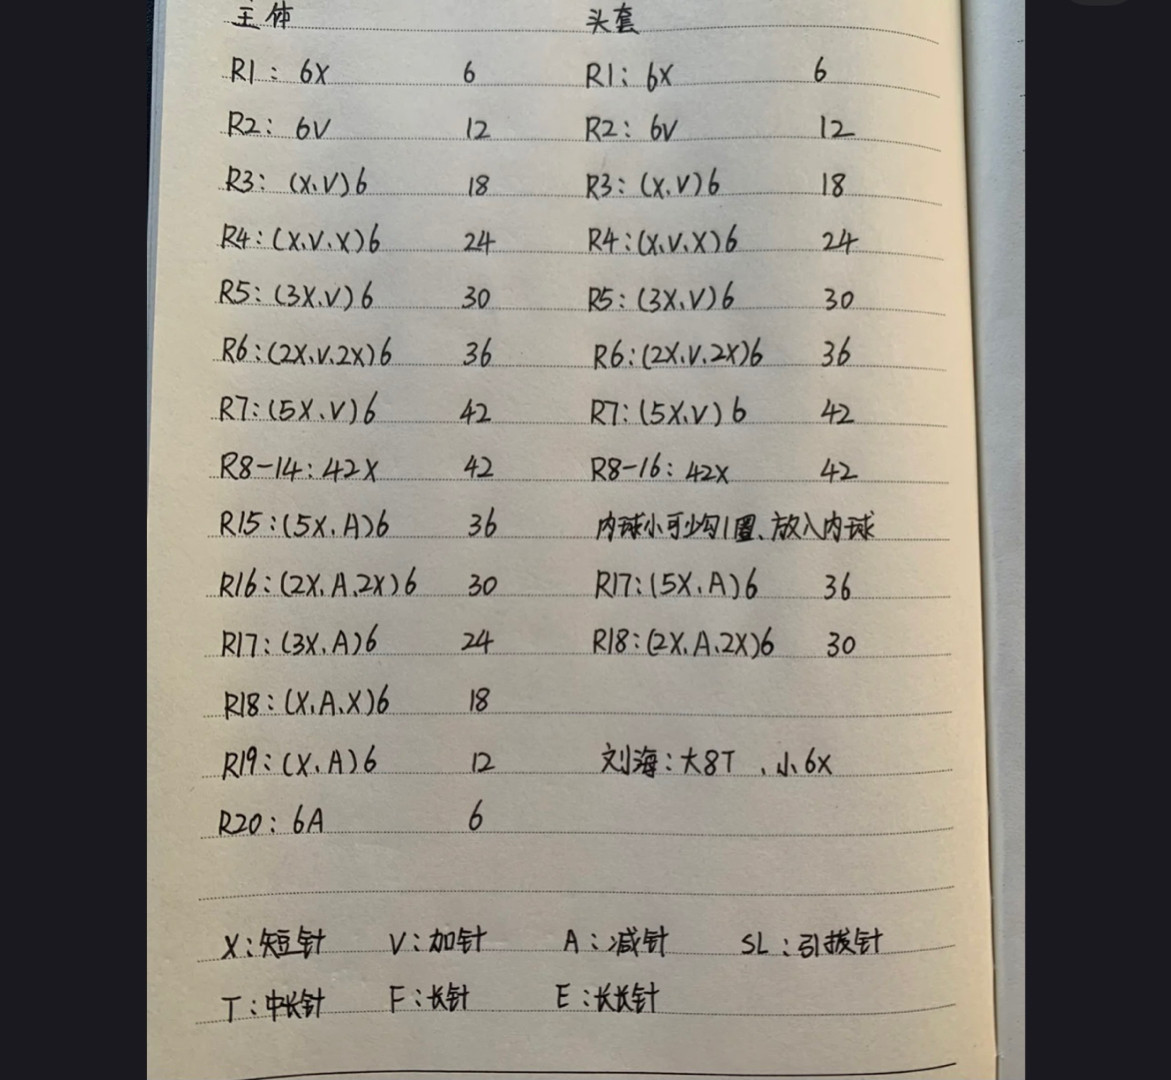 主体 头套
R1: 6X 6 R1: 6X 6
R2: 6V 12 R2: 6V 12
R3: (X.V)6 18 R3: (X.V)6 18
R4:(X.V.X)6 24 R4:(X.V.X)6 24
R5:(3X.V)6 30 R5:(3X.V)6 30
R6:(2X.V.2X)6 36 R6:(2X.V.2X)6 36
R7:(5X.V)6 42 R7:(5X.V)6 42
R8-14:42X 42 R8-16: 42X 42
R15:(5X.A)6 36 内球小可少勾1圈、放入内球
R16:(2X.A.2X)6 30 R17:(5X.A)6 36
R17:(3X.A)6 24 R18:(2X.A.2X)6 30
R18:(X.A.X)6 18
R19:(X.A)6 12 刘海:大8T 、小6X
R20: 6A 6
X:短针 V:加针 A:减针 SL:引拔针
T:中长针 F:长针 E:长长针